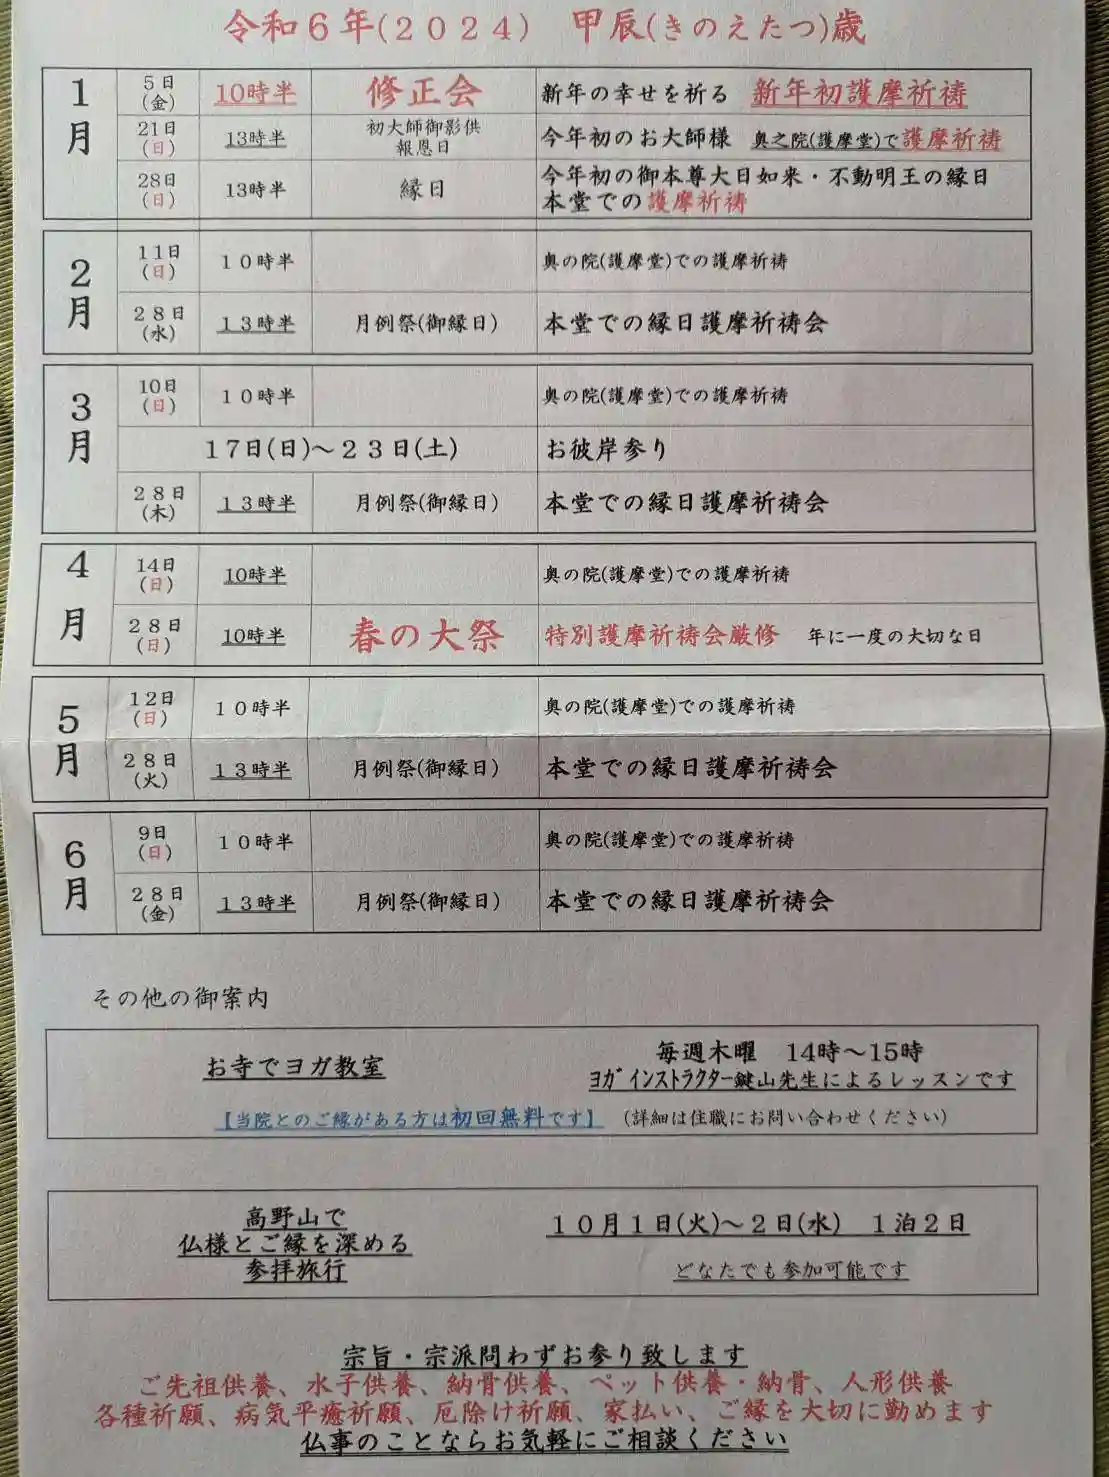 令和６年(２０２４)　甲辰(きのえたつ)歳
1月
5日(金)　10時半　修正会　新年の幸せを祈る　新年初護摩祈祷
21日(日)　13時半　初大師御影供報恩日　今年初のお大師様　奥之院(護摩堂)で護摩祈祷
28日(日)　13時半　縁日　今年初の御本尊大日如来・不動明王の縁日
本堂での護摩祈祷
2月
11日(日)　１０時半　奥の院(護摩堂)での護摩祈祷
２８日(水)　１３時半　月例祭(御縁日)　本堂での縁日護摩祈祷会
3月
10日(日)　１０時半　奥の院(護摩堂)での護摩祈祷
１７日(日)～２３日(土)　お彼岸参り
２８日(木)　１３時半　月例祭(御縁日)　本堂での縁日護摩祈祷会
4月
14日(日)　10時半　奥の院(護摩堂)での護摩祈祷
２８日(日)　10時半　春の大祭　特別護摩祈祷会厳修　年に一度の大切な日
5月
１２日(日)　１０時半　奥の院(護摩堂)での護摩祈祷
２８日(火)　１３時半　月例祭(御縁日)　本堂での縁日護摩祈祷会
6月
9日(日)　１０時半　奥の院(護摩堂)での護摩祈祷
２８日(金)　１３時半　月例祭(御縁日)　本堂での縁日護摩祈祷会
その他の御案内
お寺でヨガ教室　毎週木曜　14時～15時
ﾖｶﾞｲﾝｽﾄﾗｸﾀｰ鍵山先生によるレッスンです
【当院とのご縁がある方は初回無料です】　(詳細は住職にお問い合わせください)
高野山で
仏様とご縁を深める
参拝旅行
１０月１日(火)～２日(水)　１泊２日
どなたでも参加可能です
宗旨・宗派問わずお参り致します
ご先祖供養、水子供養、納骨供養、ペット供養・納骨、人形供養
各種祈願、病気平癒祈願、厄除け祈願、家払い、ご縁を大切に勤めます
仏事のことならお気軽にご相談ください